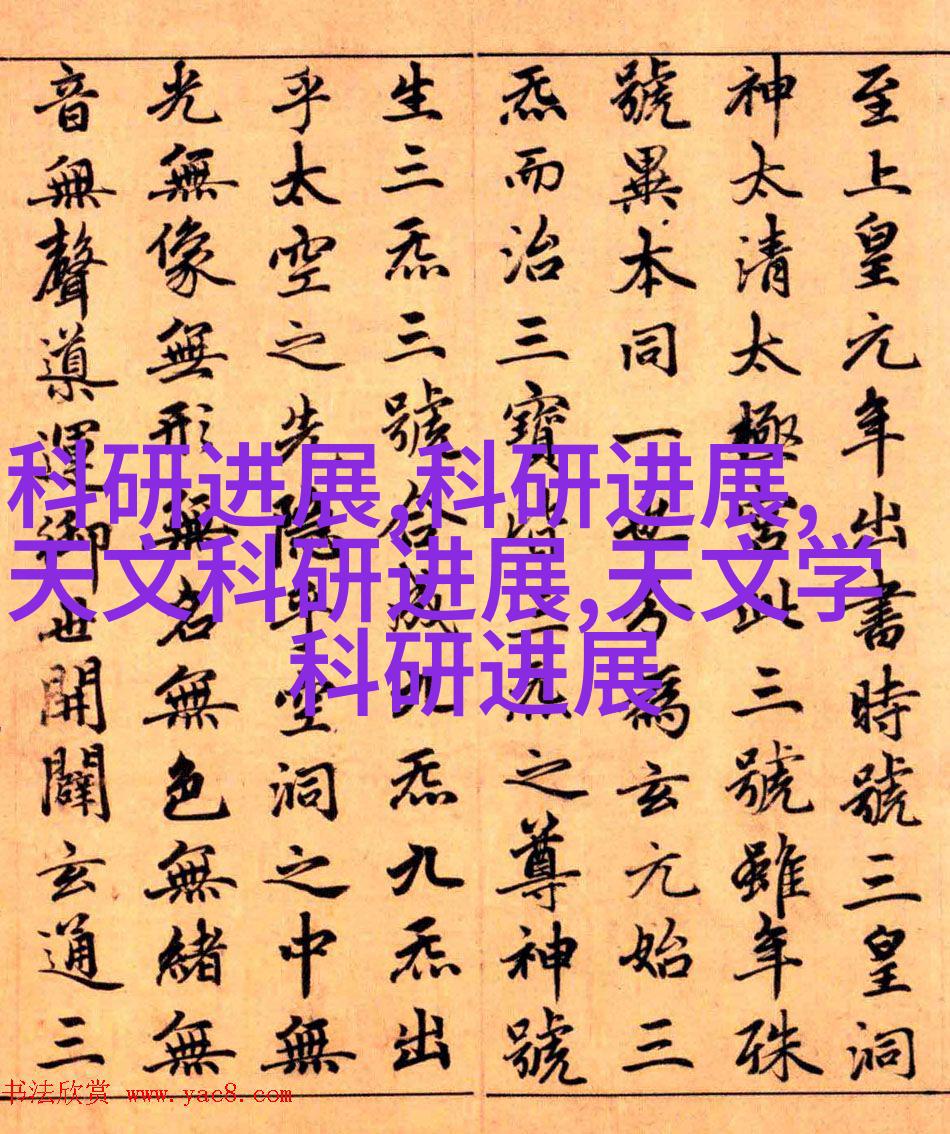 至上皇元年出書時號三皇洞
神太清太極宮此三號雖年殊
號異本同一也分為玄元始三
炁而治三寶皆三炁之尊神號
生三炁三號合成九炁九炁出
乎太空之先隱乎空洞之中無
光無像無形無名無色無緒無
音無聲導運御世開闢玄通三
科研进展,科研进展,
天文科研进展,天文学
科研进展
书法欣赏 www.yac8.com